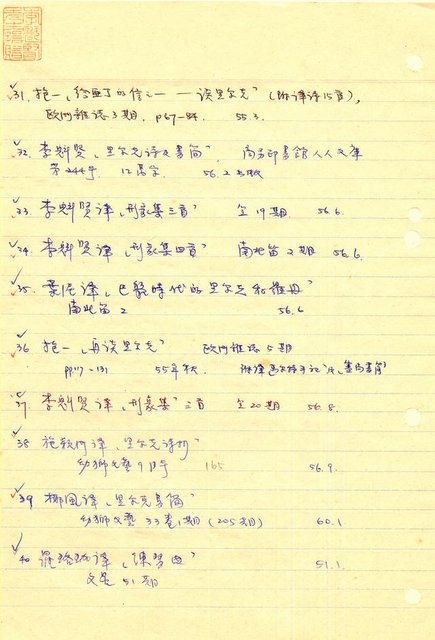 31. 抱一,「給 的信之一——談里尔克」(附譯詩15首),
欧洲雜誌3期, p67-84. 55.3.
32. 李魁賢,「里尔克詩及書簡」, 商務印書館人人文庫
第244号, 12萬字, 56.2 出版
33. 李魁賢譯,「形象集三首」 仝19期 56.6.
34. 李魁賢譯,「形象集四首」 南北笛2期 56.6.
35. 葉泥譯,「巴黎時代的里尔克和羅丹」
南北笛2 56.6
36 抱一,「再談里尔克」 欧洲雜誌5期
pp117-131 55年秋
37. 李魁賢譯,「形象集」三首 仝20期 56.8.
38 施 譯,「里尔克詩抄」
幼獅文藝9月号 165 56.9.
39 柳風譯,「里尔克書簡」
幼獅文藝33卷1期(205期) 60.1
40 羅 譯,「陳習曲」 51.1.
文星51期